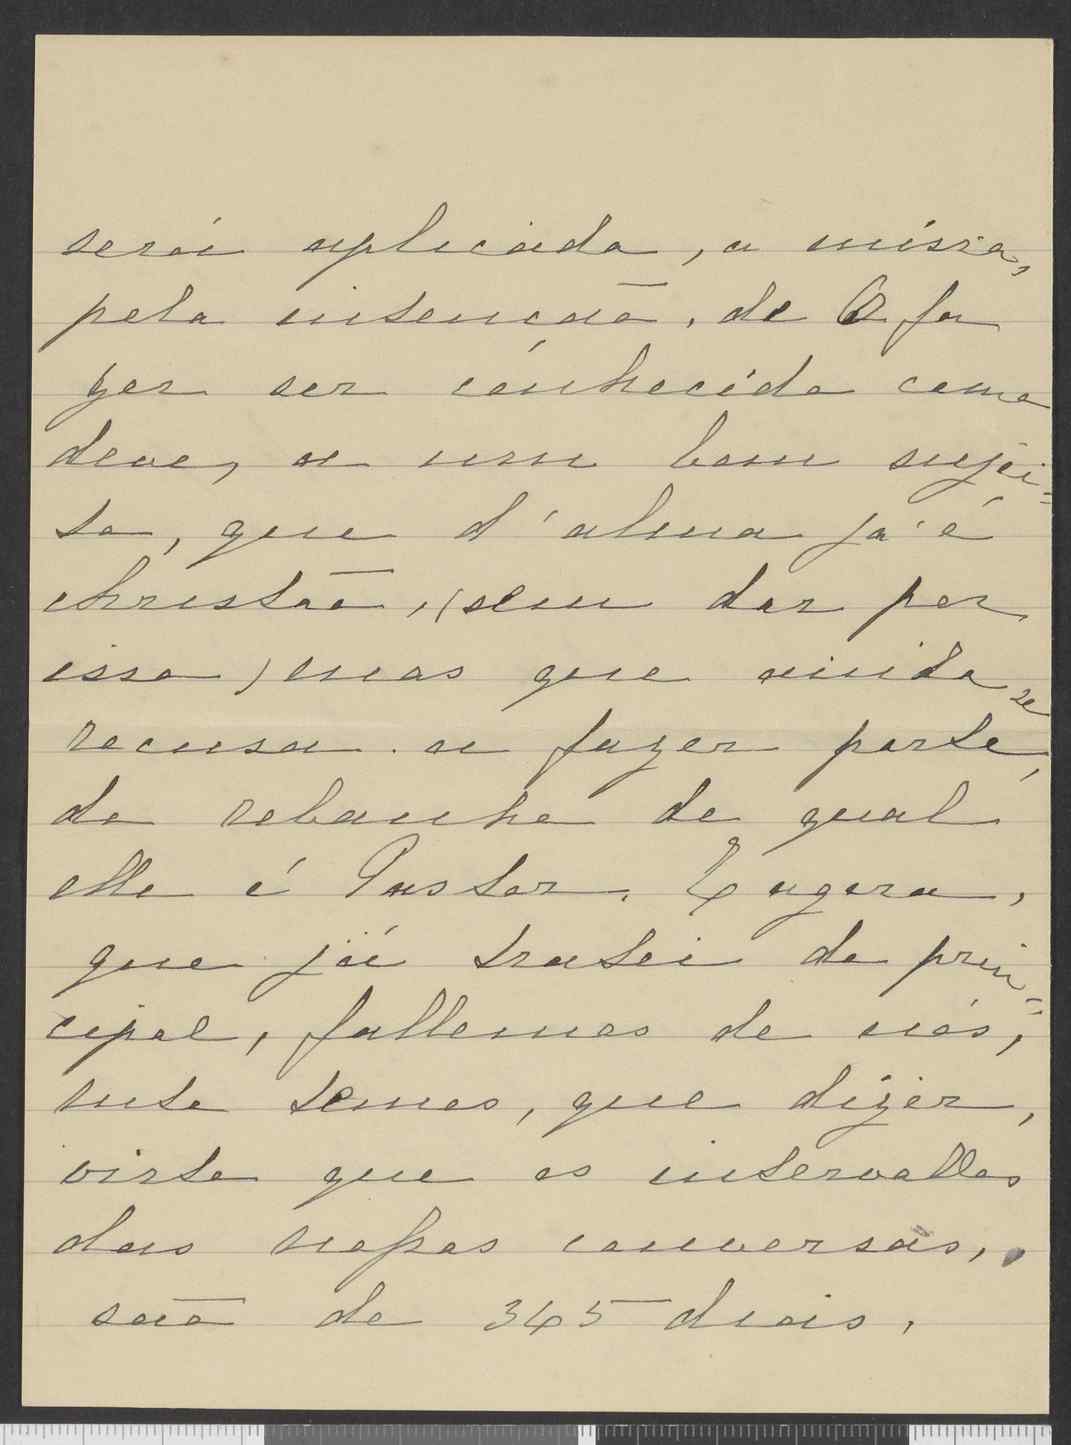 será aplicada, a missa,
pela intenção, de O fa
zer ser conhecido como
deve, a um bom sujei-
to, que d'alma já é
christão, (sem dar por
isso) mas que ainda se
recusa a fazer parte,
do rebanho do qual
elle é Pastor. Agora,
que já tratei do prin-
cipal, fallemos de nós,
muito temos, que dizer,
visto que os intervallos
das nossas conversas,
são de 365 dias.